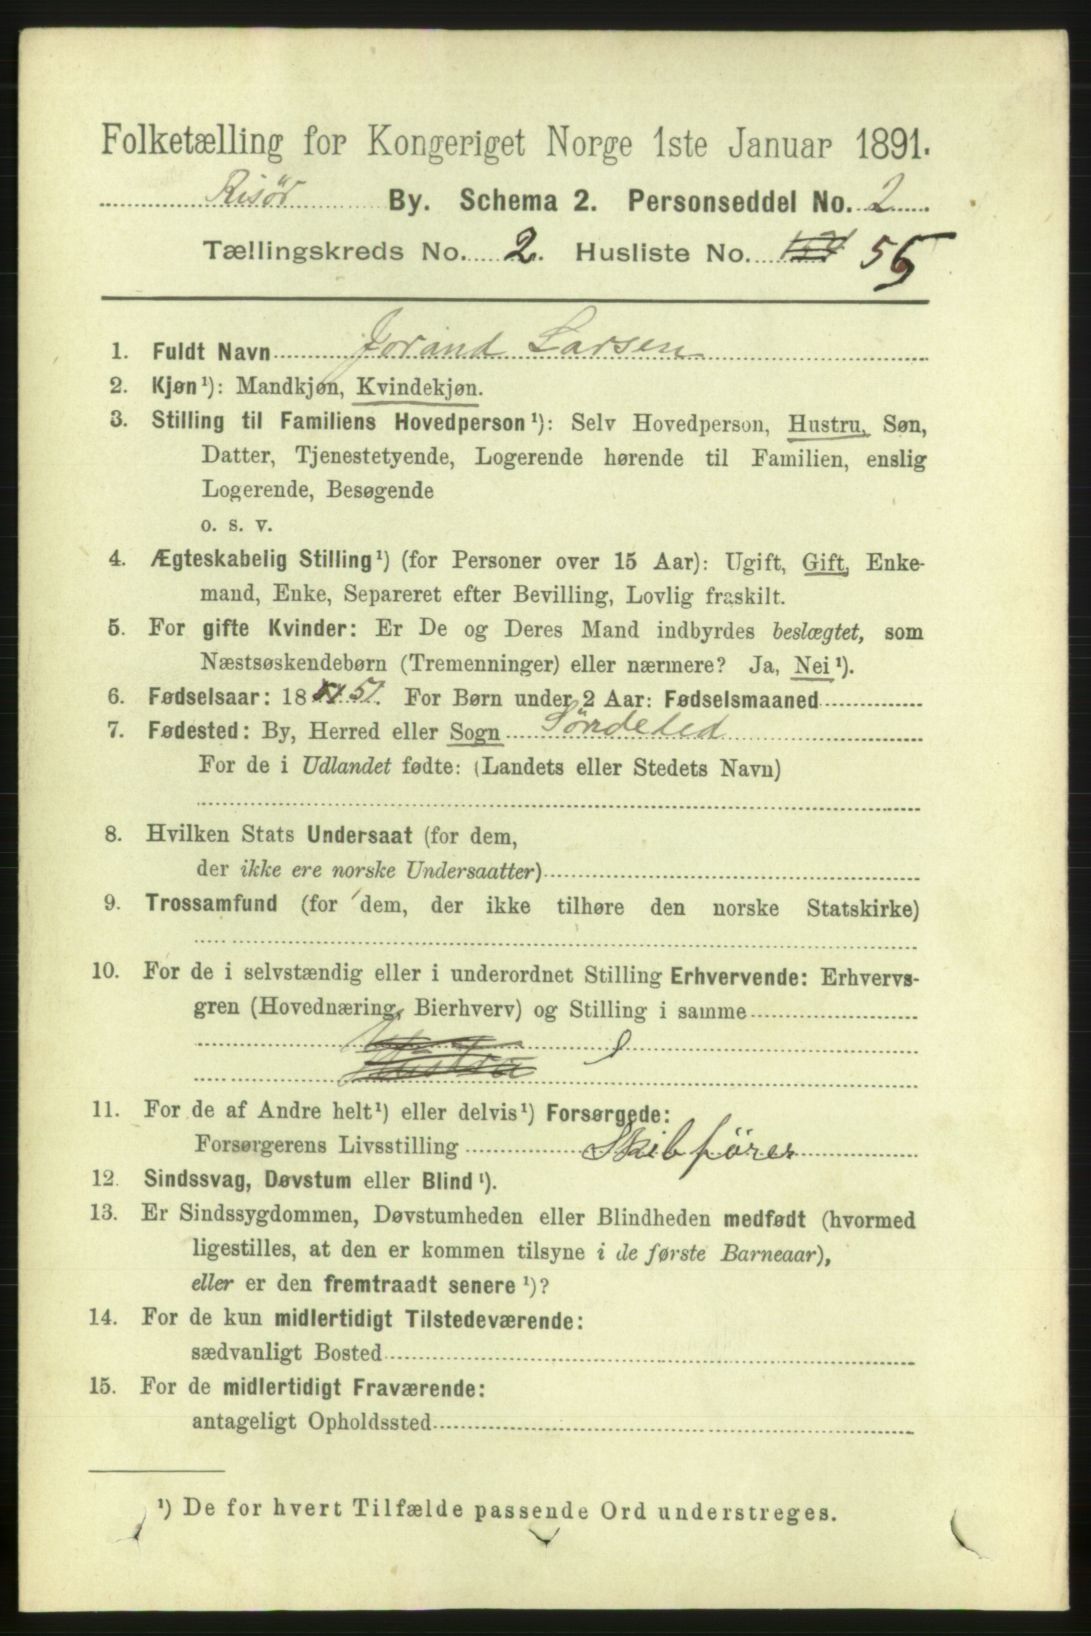 Folketælling for Kongeriget Norge 1ste Januar 1891.
Risør By. Schema 2. Personseddel No. 2
Tællingskreds No. 2. Husliste No. 55
1. Fuldt Navn Jorand Larsen
2. Kjøn¹): Mandkjøn, Kvindekjøn.
3. Stilling til Familiens Hovedperson¹): Selv Hovedperson, Hustru, Søn,
Datter, Tjenestetyende, Logerende hørende til Familien, enslig
Logerende, Besøgende
o. s. v.
4. Ægteskabelig Stilling¹) (for Personer over 15 Aar): Ugift, Gift, Enke-
mand, Enke, Separeret efter Bevilling, Lovlig fraskilt.
5. For gifte Kvinder: Er De og Deres Mand indbyrdes beslægtet, som
Næstsøskendebørn (Tremenninger) eller nærmere? Ja, Nei¹).
6. Fødselsaar: 18 51. For Børn under 2 Aar: Fødselsmaaned
7. Fødested: By, Herred eller Sogn Søndeled
For de i Udlandet fødte: (Landets eller Stedets Navn)
8. Hvilken Stats Undersaat (for dem,
der ikke ere norske Undersaatter)
9. Trossamfund (for dem, der ikke tilhøre den norske Statskirke)
10. For de i selvstændig eller i underordnet Stilling Erhvervende: Erhvervs-
gren (Hovednæring, Bierhverv) og Stilling i samme
Hustru
11. For de af Andre helt¹) eller delvis¹) Forsørgede:
Forsørgerens Livsstilling Skibfører
12. Sindssvag, Døvstum eller Blind¹).
13. Er Sindssygdommen, Døvstumheden eller Blindheden medfødt (hvormed
ligestilles, at den er kommen tilsyne i de første Barneaar),
eller er den fremtraadt senere¹)?
14. For de kun midlertidigt Tilstedeværende:
sædvanligt Bosted
15. For de midlertidigt Fraværende:
antageligt Opholdssted
¹) De for hvert Tilfælde passende Ord understreges.